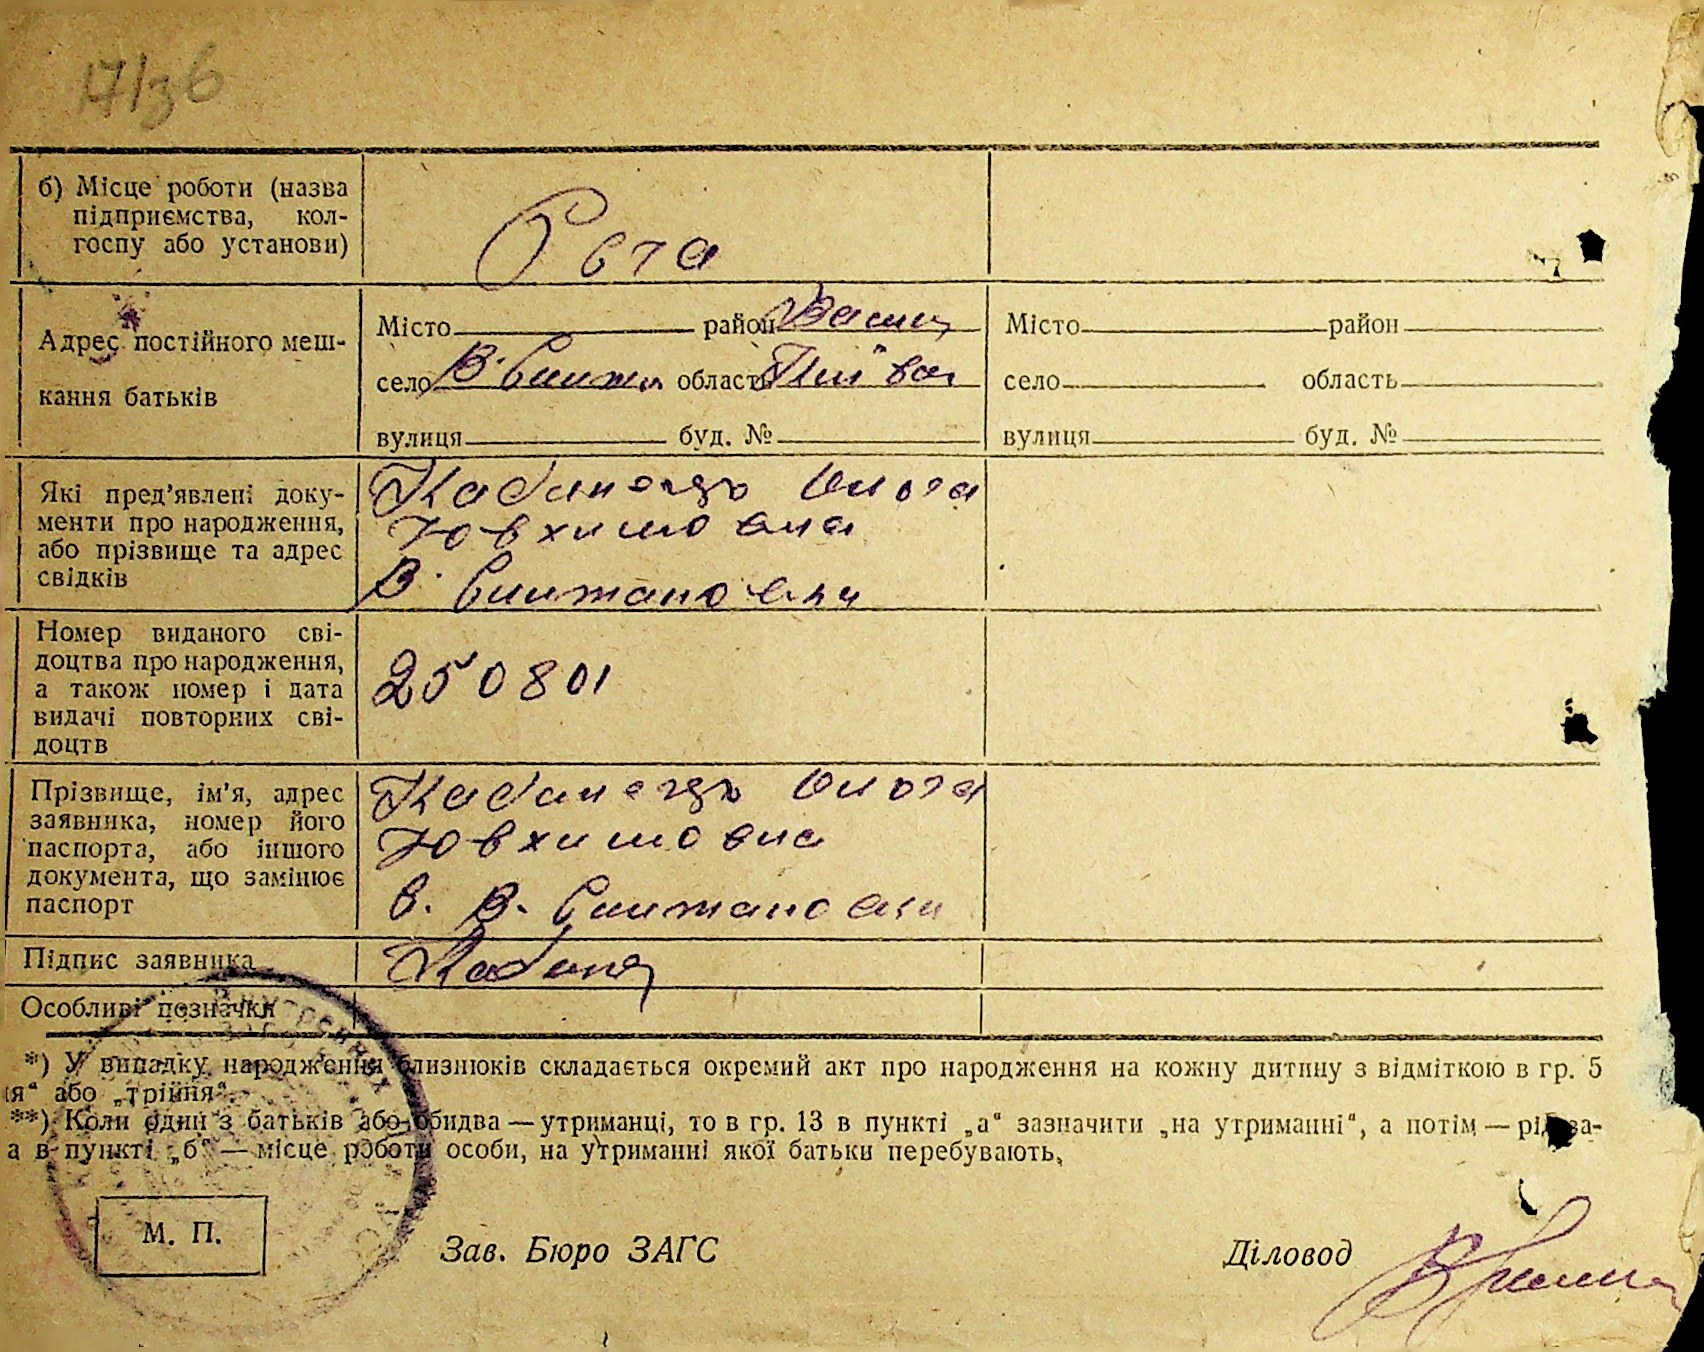 17/36
б) Місце роботи (назва
підприємства, кол-
госпу або установи)
Адрес постійного меш-
кання батьків
Місто район Васил
село В. Снітж область Київсь
вулиця буд. №
Місто район
село область
вулиця буд. №
Які пред'явлені доку-
менти про народження,
або прізвище та адрес
свідків
Ольга
Ювхимовна
В. Снітжановки
Номер виданого сві-
доцтва про народження,
а також номер і дата
видачі повторних сві-
доцтв
250801
Прізвище, ім'я, адрес
заявника, номер його
паспорта, або іншого
документа, що замінює
паспорт
Ольга
Ювхимовна
с. В. Снітжановки
Підпис заявника
Особливі позначки
*) У випадку народження близнюків складається окремий акт про народження на кожну дитину з відміткою в гр. 5
ія“ або „трійня“.
**) Коли один з батьків або обидва — утриманці, то в гр. 13 в пункті „а“ зазначити „на утриманні“, а потім —
а в пункті „б“ — місце роботи особи, на утриманні якої батьки перебувають.
М. П.
Зав. Бюро ЗАГС
Діловод